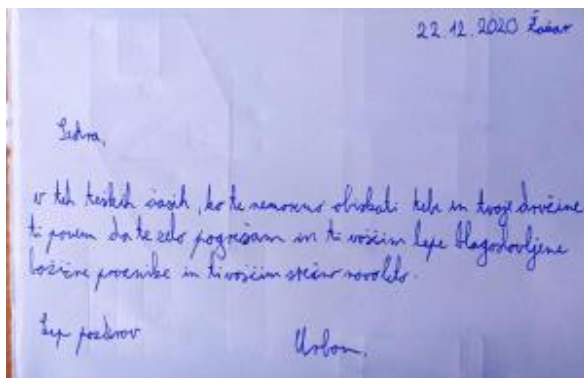 22.12.2020 Žabar
Sestra,
v teh teskih časih, ko te nemoremo obiskati tebe in tvoje družine
ti povem da te zelo pogrešam in ti voščim lepe blagoslovljene
božične praznike in ti voščim srečno novo leto.
Lep pozdrav
Urban